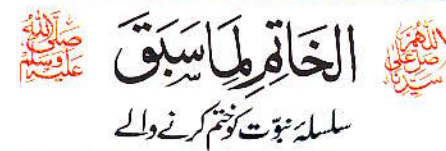 اللهم صل على سيدنا
الخَاتِمِ لِمَا سَبَقَ
صلى الله عليه وسلم
سلسلۂ نبوّت کو ختم کرنے والے